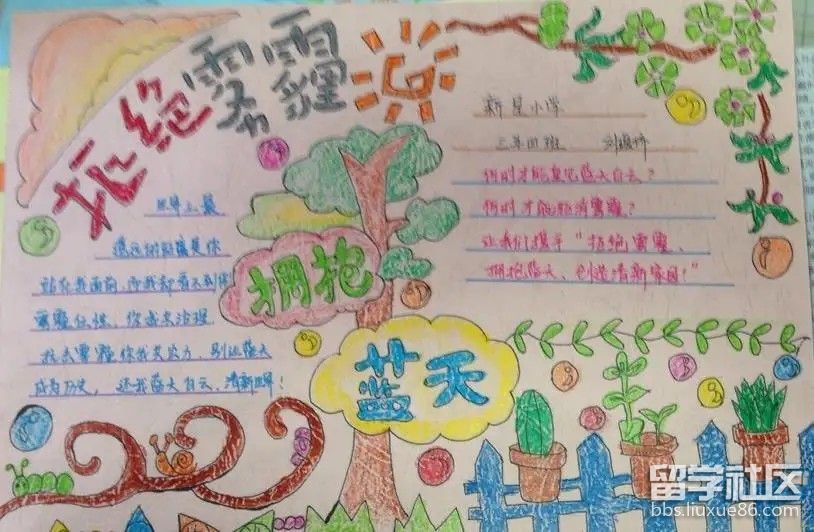 拒绝雾霾
新星小学
三年四班
何时才能重见蓝天白云？
何时才能抵消雾霾？
让我们携手“拒绝雾霾、
拥抱蓝天、创造清新家园！”
拥抱
蓝天
遥远的距离是你
站在我面前，而我却看不到你
雾霾危快，你我来治理
抗击雾霾你我共实力，别让蓝天
成为历史，还我蓝天白云，清新世界！
留学社区
bbs.liuxue86.com